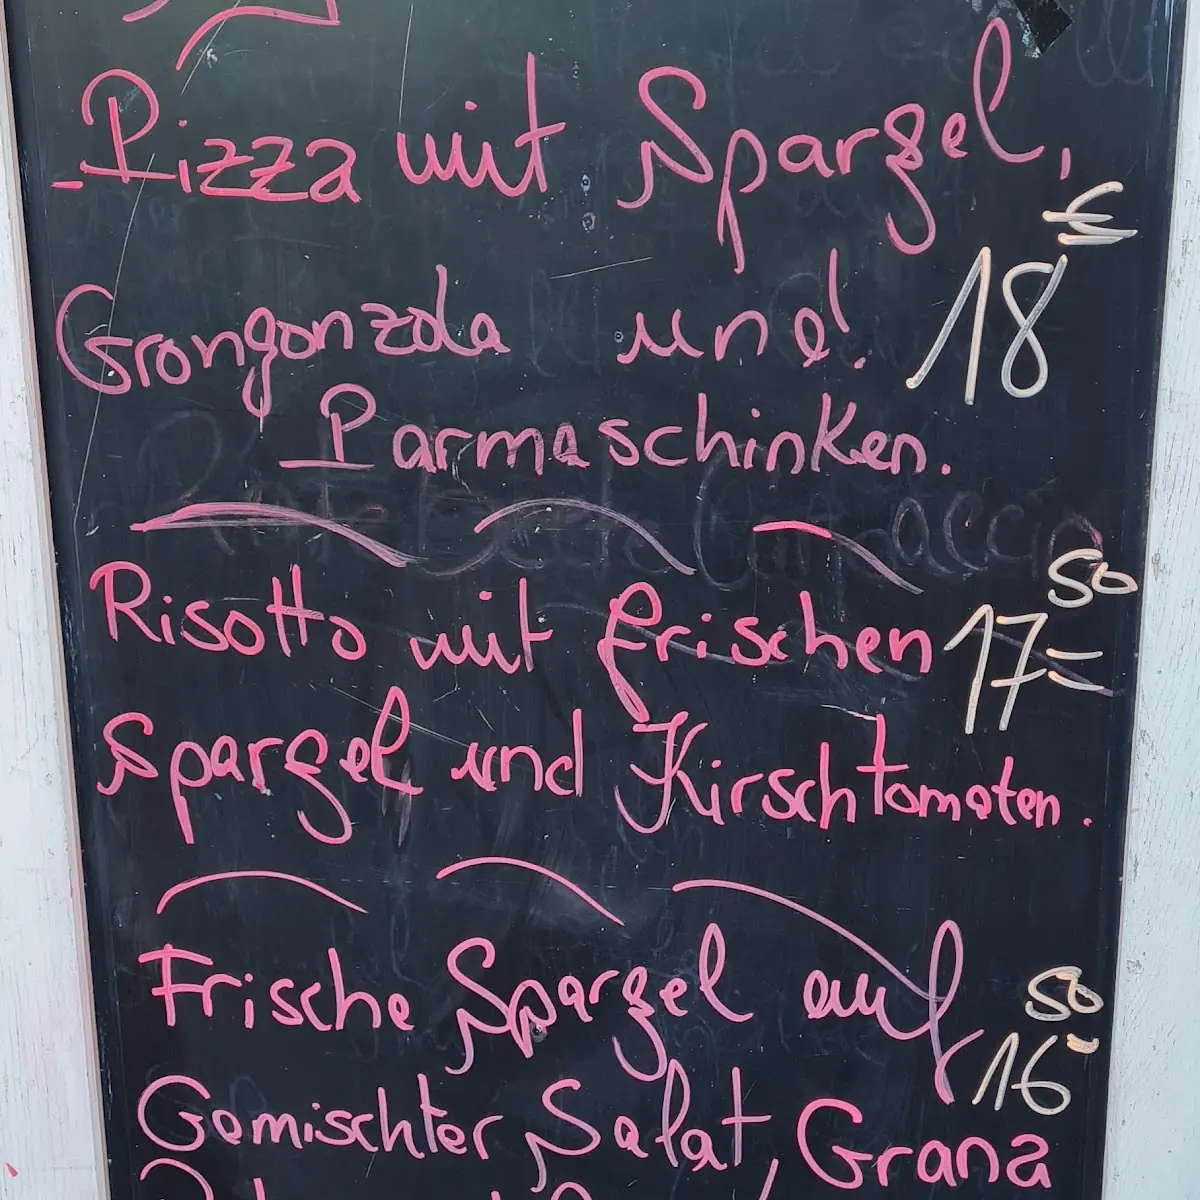 Pizza mit Spargel,
€
Grongonzola und 18
Parmaschinken.
50
Risotto mit frischen 17=
Spargel und Kirschtomaten.
Frische Spargel auf 50
16
Gemischter Salat, Grana